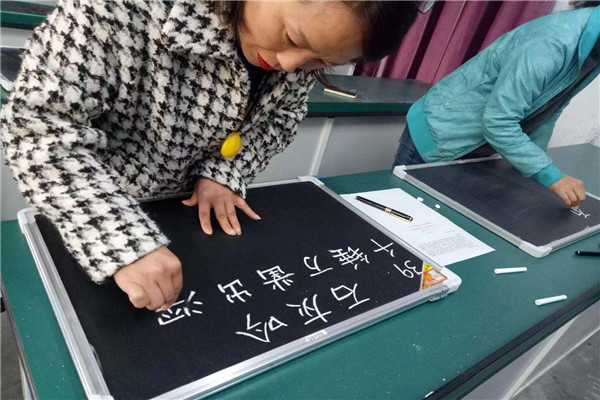 石灰吟
千锤万凿出深